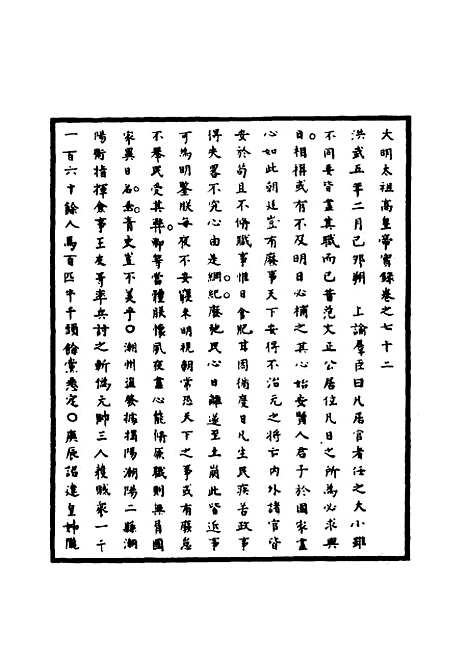 大明太祖高皇帝實錄卷之七十二
洪武五年二月己卯朔　上諭羣臣曰凡居官者任之大小雖
不同要皆盡其職而已昔范文正公居位凡日之所為必求與
日相稱或有不及明日必補之其心始安賢人君子於國家盡
心如此朝廷豈有廢事天下安得不治元之將亡內外諸官皆
安於苟且不脩職事惟日食肥甘因循度日凡生民疾苦政事
得失畧不究心由是綱紀廢弛民心日離遂至土崩此皆近事
可為明鑒朕每夜不安寢未明視朝常恐天下之事或有廢怠
不舉民受其弊卿等當體朕懷夙夜盡心能脩厥職則無負國
家異日名垂青史豈不美乎○潮州溫餐據揭陽潮陽二縣潮
陽衛指揮僉事王友哥率兵討之斬偽元帥三人獲賊眾一千
一百六十餘人馬百匹牛千頭餘黨悉定○庚辰詔建皇妣隴